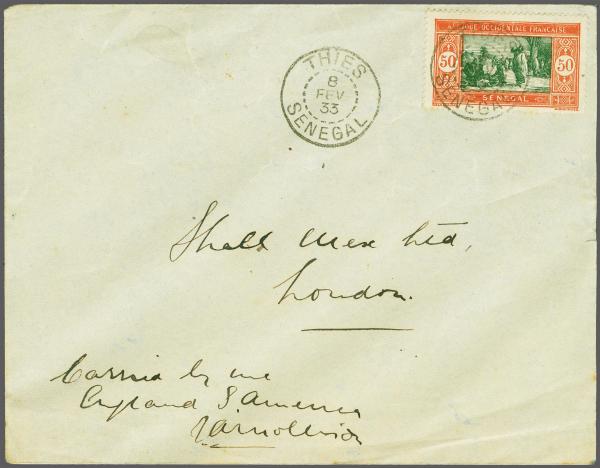 AFRIQUE OCCIDENTALE FRANCAISE
50 50
SENEGAL
THIES
8
FEV
33
SENEGAL
SENEGAL
Shell Mex Ltd,
London.
Carried by me
England S America
J A Mollison